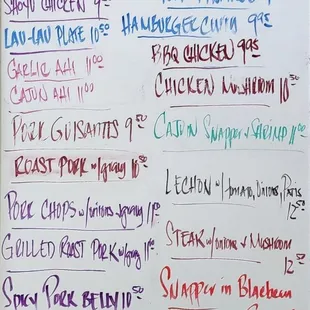 SHOYU CHICKEN 9
LAU-LAU PLATE 10 50
GARLIC AHI 11 00
CAJUN AHI 11 00
PORK GUISANTES 9 50
ROAST PORK w/gravy 10 50
PORK CHOPS w/onions & gravy 11 00
GRILLED ROAST PORK w/gravy 11 00
SPICY PORK BELLY 10 50
HAMBURGER CURRY 9 95
BBQ CHICKEN 9 95
CHICKEN MUSHROOM 10 50
CAJUN SNAPPER & SHRIMP 11 00
LECHON w/ tomato, Onions,
12 50
STEAK w/onions & MUSHROOM
12 50
SNAPPER in Blackbean